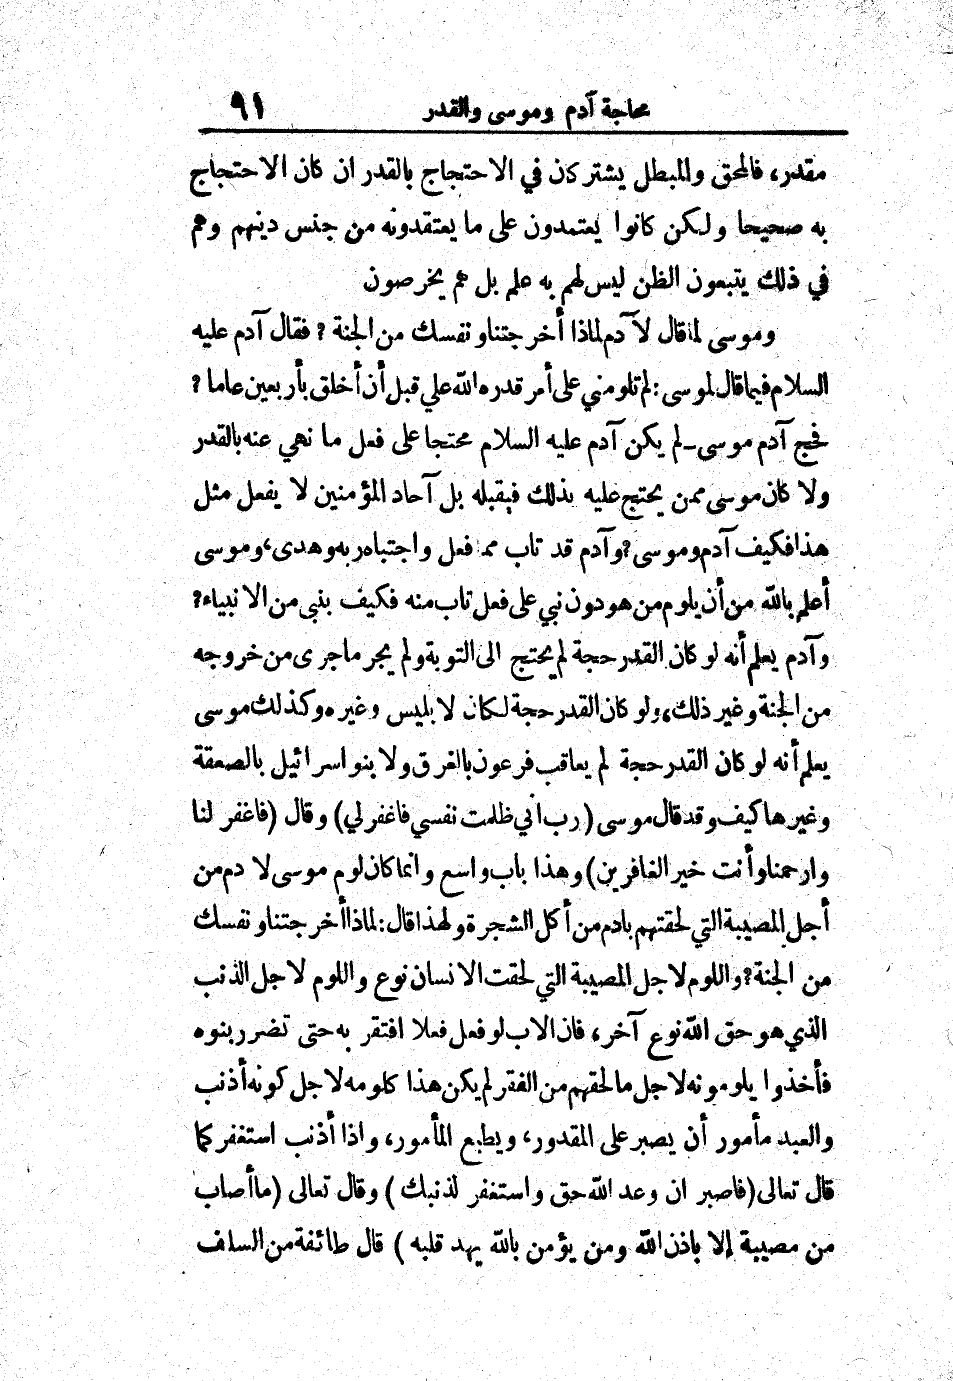 محاجة آدم وموسى والقدر ٩١
مقدر، فالمحق والمبطل يشتركان في الاحتجاج بالقدر ان كان الاحتجاج
به صحيحا ولكن كانوا يعتمدون على ما يعتقدونه من جنس دينهم وهم
في ذلك يتبعون الظن ليس لهم به علم بل هم يخرصون
وموسى لما قال لآدم لماذا أخرجتنا ونفسك من الجنة ؟ فقال آدم عليه
السلام فيما قال لموسى : لم تلومني على أمر قدره الله علي قبل أن أخلق بأربعين عاما ؟
فحج آدم موسى ــ لم يكن آدم عليه السلام محتجا على فعل ما نهي عنه بالقدر
ولا كان موسى ممن يحتج عليه بذلك فيقبله بل آحاد المؤمنين لا يفعل مثل
هذا فكيف آدم وموسى ؟ وآدم قد تاب مما فعل واجتباه ربه وهدى، وموسى
أعلم بالله من أن يلوم من هو دون نبي على فعل تاب منه فكيف بنبي من الانبياء ؟
وآدم يعلم أنه لو كان القدر حجة لم يحتج الى التوبة ولم يجر ما جرى من خروجه
من الجنة وغير ذلك، ولو كان القدر حجة لكان لابليس وغيره وكذلك موسى
يعلم أنه لو كان القدر حجة لم يعاقب فرعون بالغرق ولا بنو اسرائيل بالصعقة
وغيرها كيف وقد قال موسى ( رب اني ظلمت نفسي فاغفر لي ) وقال ( فاغفر لنا
وارحمنا وأنت خير الغافرين ) وهذا باب واسع وانما كان لوم موسى لآدم من
أجل المصيبة التي لحقتهم بادم من أكل الشجرة ولهذا قال : لماذا أخرجتنا ونفسك
من الجنة ؟ واللوم لاجل المصيبة التي لحقت الانسان نوع واللوم لاجل الذنب
الذي هو حق الله نوع آخر، فان الاب لو فعل فعلا افتقر به حتى تضرر بنوه
فأخذوا يلومونه لاجل ما لحقهم من الفقر لم يكن هذا كلومه لاجل كونه أذنب
والعبد مأمور أن يصبر على المقدور، ويطيع المأمور، واذا أذنب استغفر كما
قال تعالى ( فاصبر ان وعد الله حق واستغفر لذنبك ) وقال تعالى ( ما أصاب
من مصيبة إلا باذن الله ومن يؤمن بالله يهد قلبه ) قال طائفة من السلف